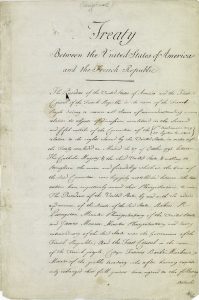 Treaty
Between the United States of America
and the French Republic
The President of the United States of America and the First
Consul of the French Republic in the name of the French
People desiring to remove all
relative to
and fifth articles of the
the rights claimed by the United States
the Treaty concluded at Madrid the 27 of October 1795, between
His Catholic Majesty & the Said United States, & willing to
Strengthen the union and friendship which at the time of
the Said Convention was happily reestablished between the two
nations have respectively named their Plenipotentiaries to wit
The President of the United States, by and with the advice
and consent of the Senate of the Said States; Robert R.
Livingston Minister Plenipotentiary of the United States
and James Monroe Minister Plenipotentiary and Envoy
extraordinary of the Said States near the Government of the
French Republic; And the First Consul in the name
of the French people, Citizen Francis Barbé Marbois
Minister of the public treasury who after having
exchanged their full powers have agreed to the following
Articles